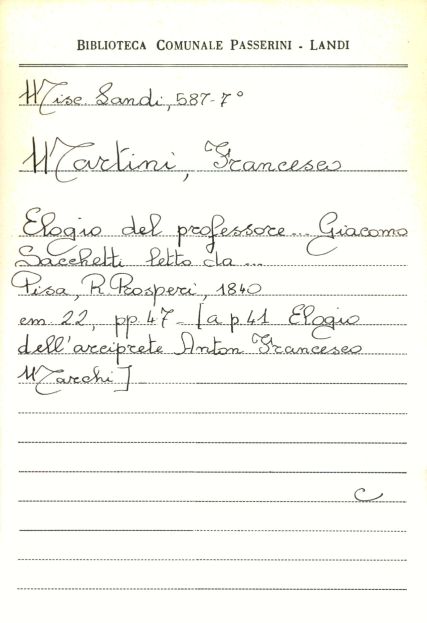 BIBLIOTECA COMUNALE PASSERINI - LANDI
Misc. Landi, 587-7°
Martini, Francesco
Elogio del professore... Giacomo
Sacchetti letto da...
Pisa, R. Prosperi, 1840
cm. 22, pp. 47 - [a p. 41 Elogio
dell'arciprete Anton Francesco
Marchi]
C